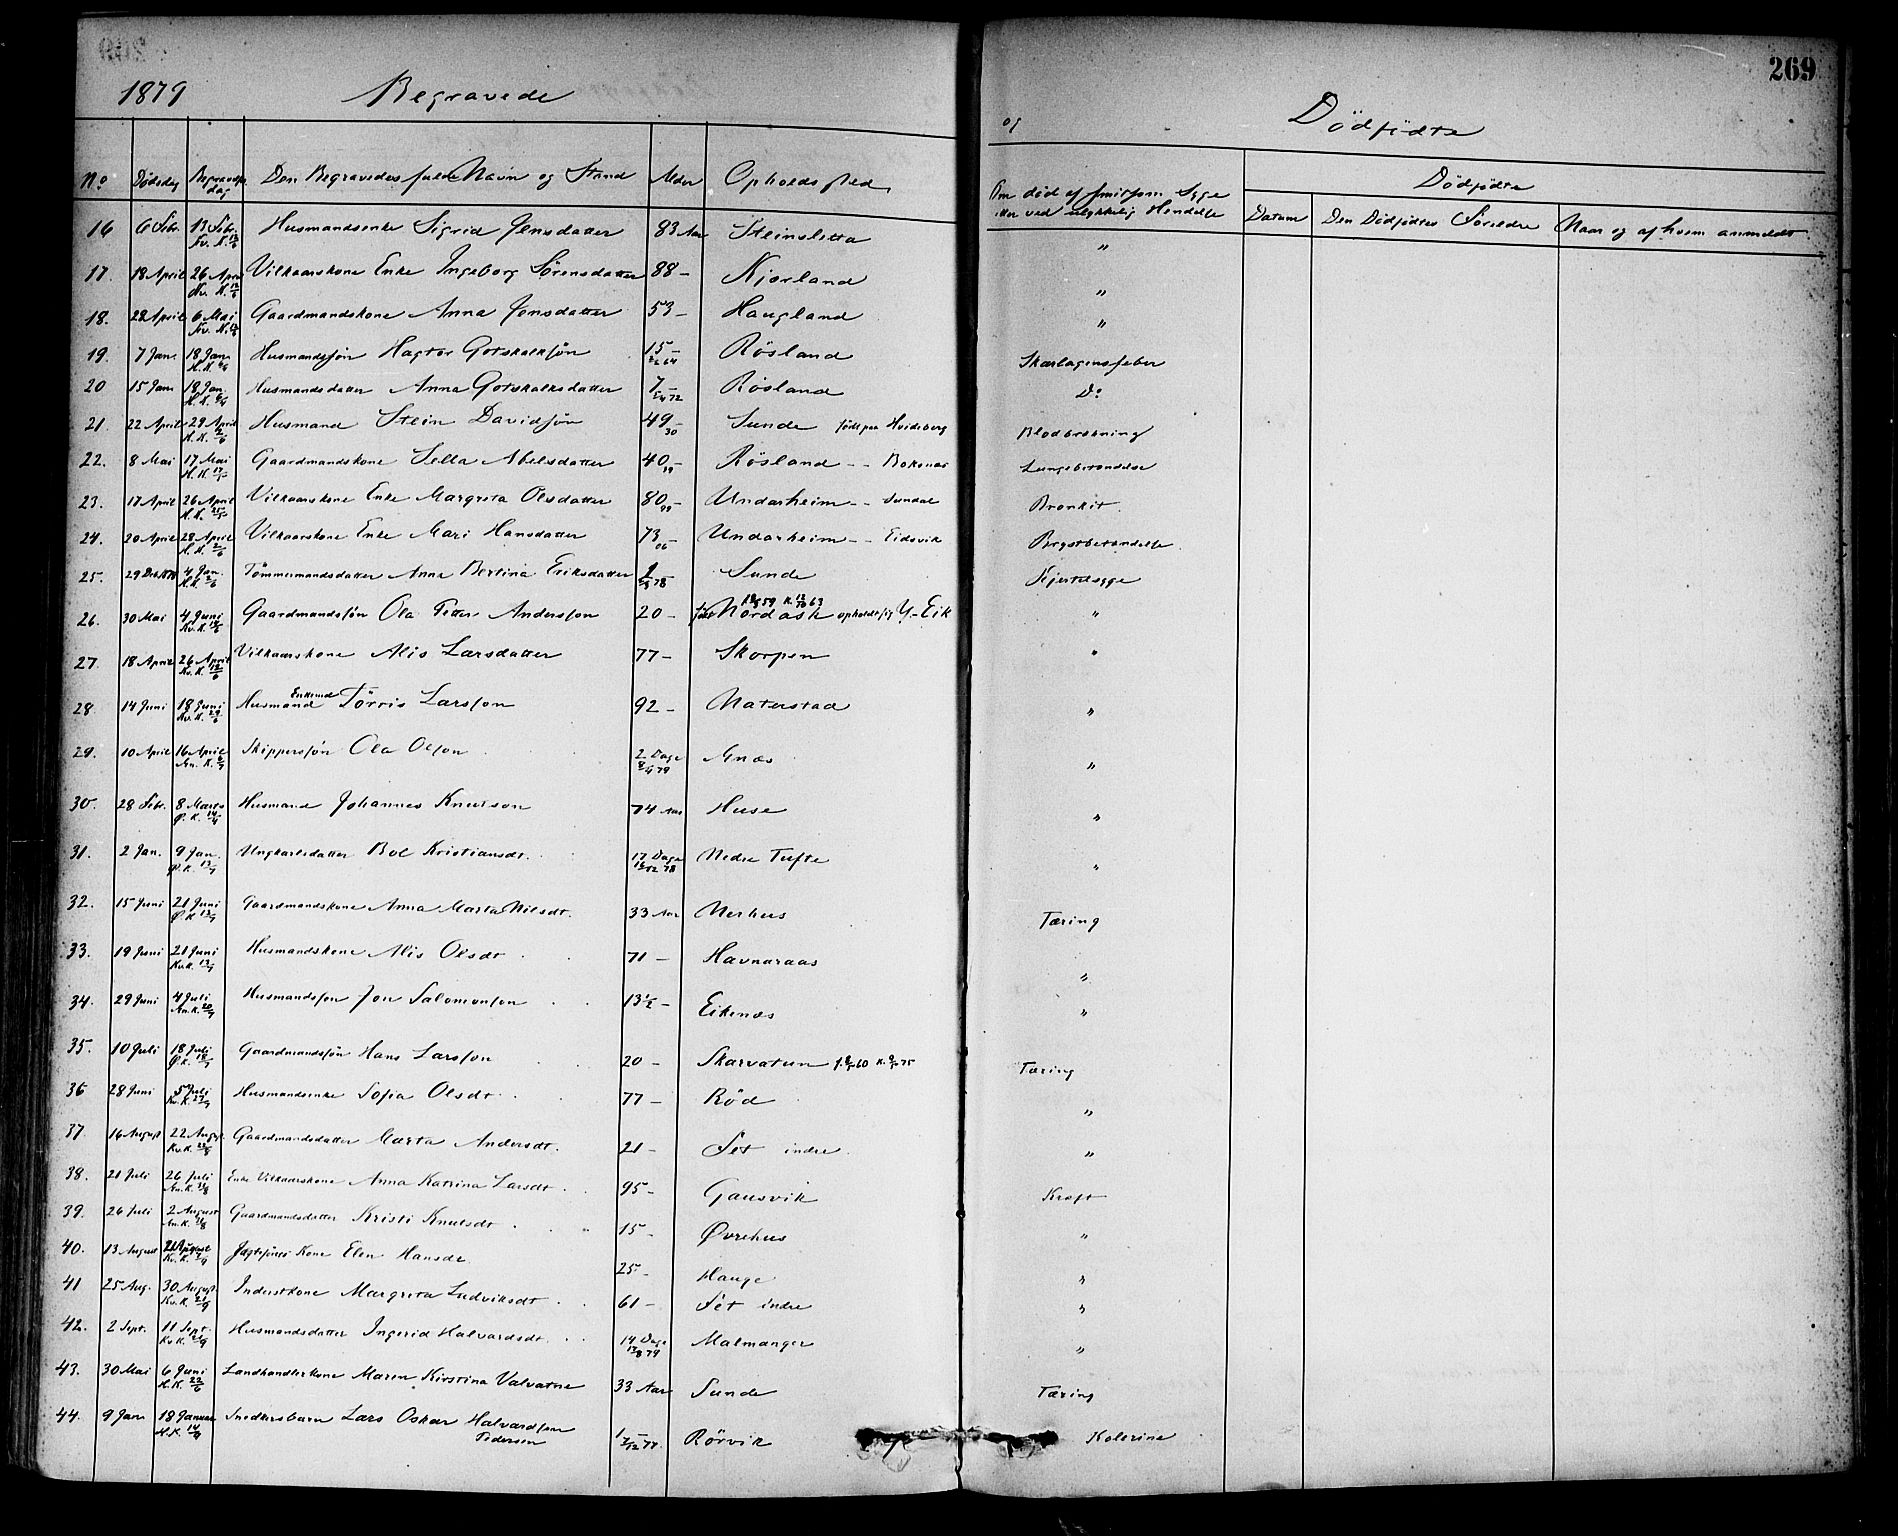 269
1879 Begravede og Dödfödte
No Dödsdag Begravelsesdag Den Begravedes fulde Navn og Stand Alder Opholdssted Om död af smitsom Syge eller ved ulykkelig Hendelse Dödfödte
Datum Den Dödfödtes Foreldre Naar og af hvem anmeldt
16 6 Febr. 13 Febr. Husmandsenke Sigrid Jensdatter 83 Aar Steinsletta "
17. 18 April 26 April Vilkaarskone Enke Ingeborg Sörensdatter 88 - Kjerland "
18. 28 April 6 Mai Gaardmandskone Anna Jensdatter 53 - Haugland "
19. 7 Jan. 18 Jan. Husmandssön Hagtor Gotskalksön 15 - Rösland Skarlagensfeber
20 15 Jan. 18 Jan. Husmandsdatter Anna Gotskalksdatter 7 - Rösland Do
21. 22 April 29 April Husmand Stein Davidsön 49 - 30 Sunde födt paa Hvideberg Blodbrækning
22. 8 Mai 17 Mai Gaardmandskone Sella Abelsdatter 40 - Rösland - - Lungebetændelse
23. 17 April 26 April Vilkaarskone Enke Margreta Olsdatter 80 - 99 Undarheim - - Sundal Bronkit.
24. 20 April 28 April Vilkaarskone Enke Mari Hansdatter 73 - 06 Undarheim - - Eidsvik Brystbetændelse
25. 29 Dcb. 1878 4 Jan. Tömmermandsdatter Anna Bertina Eriksdatter Sunde Kjertelsyge
26. 30 Mai 4 Juni Gaardmandssön Ola Petter Anderssøn 20 - født Nordask opholdt sig Y-Eik "
27. 18 April 26 April Vilkaarskone Alis Larsdatter 77 - Skorpen "
28. 14 Juni 18 Juni Husmand Enkemd Törris Larssøn 92 - Naterstad "
29. 10 April 16 April Skipperssön Ola Olsøn 2 Dage Gnæs "
30. 28 Febr. 8 Marts Husmand Johannes Knutson 74 Aar Huse "
31. 2 Jan. 9 Jan. Ungkarlsdatter Bol Kristiansdt. 17 Dage Nedre Tufte "
32. 15 Juni 21 Juni Gaardmandskone Anna Marta Nilsdt. 33 Aar Nerhus Tæring
33. 19 Juni 21 Juni Husmandskone Alis Olsdt 71 - Havnaraas "
34. 29 Juni 4 Juli Husmandssøn Jon Salomonsøn 13½ - Eikenæs "
35. 10 Juli 18 Juli Gaardmandssön Hans Larssøn 20 - Skarvatun Tæring
36 28 Juni 5 Juli Husmandsenke Sofia Olsdt. 77 - Röd "
37. 16 August 22 August Gaardmandsdatter Marta Andersdt. 21 - Set indre "
38. 21 Juli 26 Juli Enke Vilkaarskone Anna Katrina Larsdt. 95 - Gausvik Kræft
39. 26 Juli 2 August Gaardmandsdatter Kristi Knutsdt 15 - Øvrehus "
40. 13 August 21 August Kone Elen Hansdt 25 - Hauge "
41 25 Aug. 30 August Inderstkone Margreta Ludviksdt. 61 - Set indre "
42. 2 Sept. 11 Sept. Husmandsdatter Ingerid Halvardsdt. 14 Dage Malmanger "
43. 30 Mai 6 Juni Landhandlerkone Maren Kirstina Valvatne 33 Aar Sunde Tæring
44. 9 Jan 18 Januar Snedkersbarn Lars Oskar Halvardsøn Pedersen 1 - Rörvik Kolerine